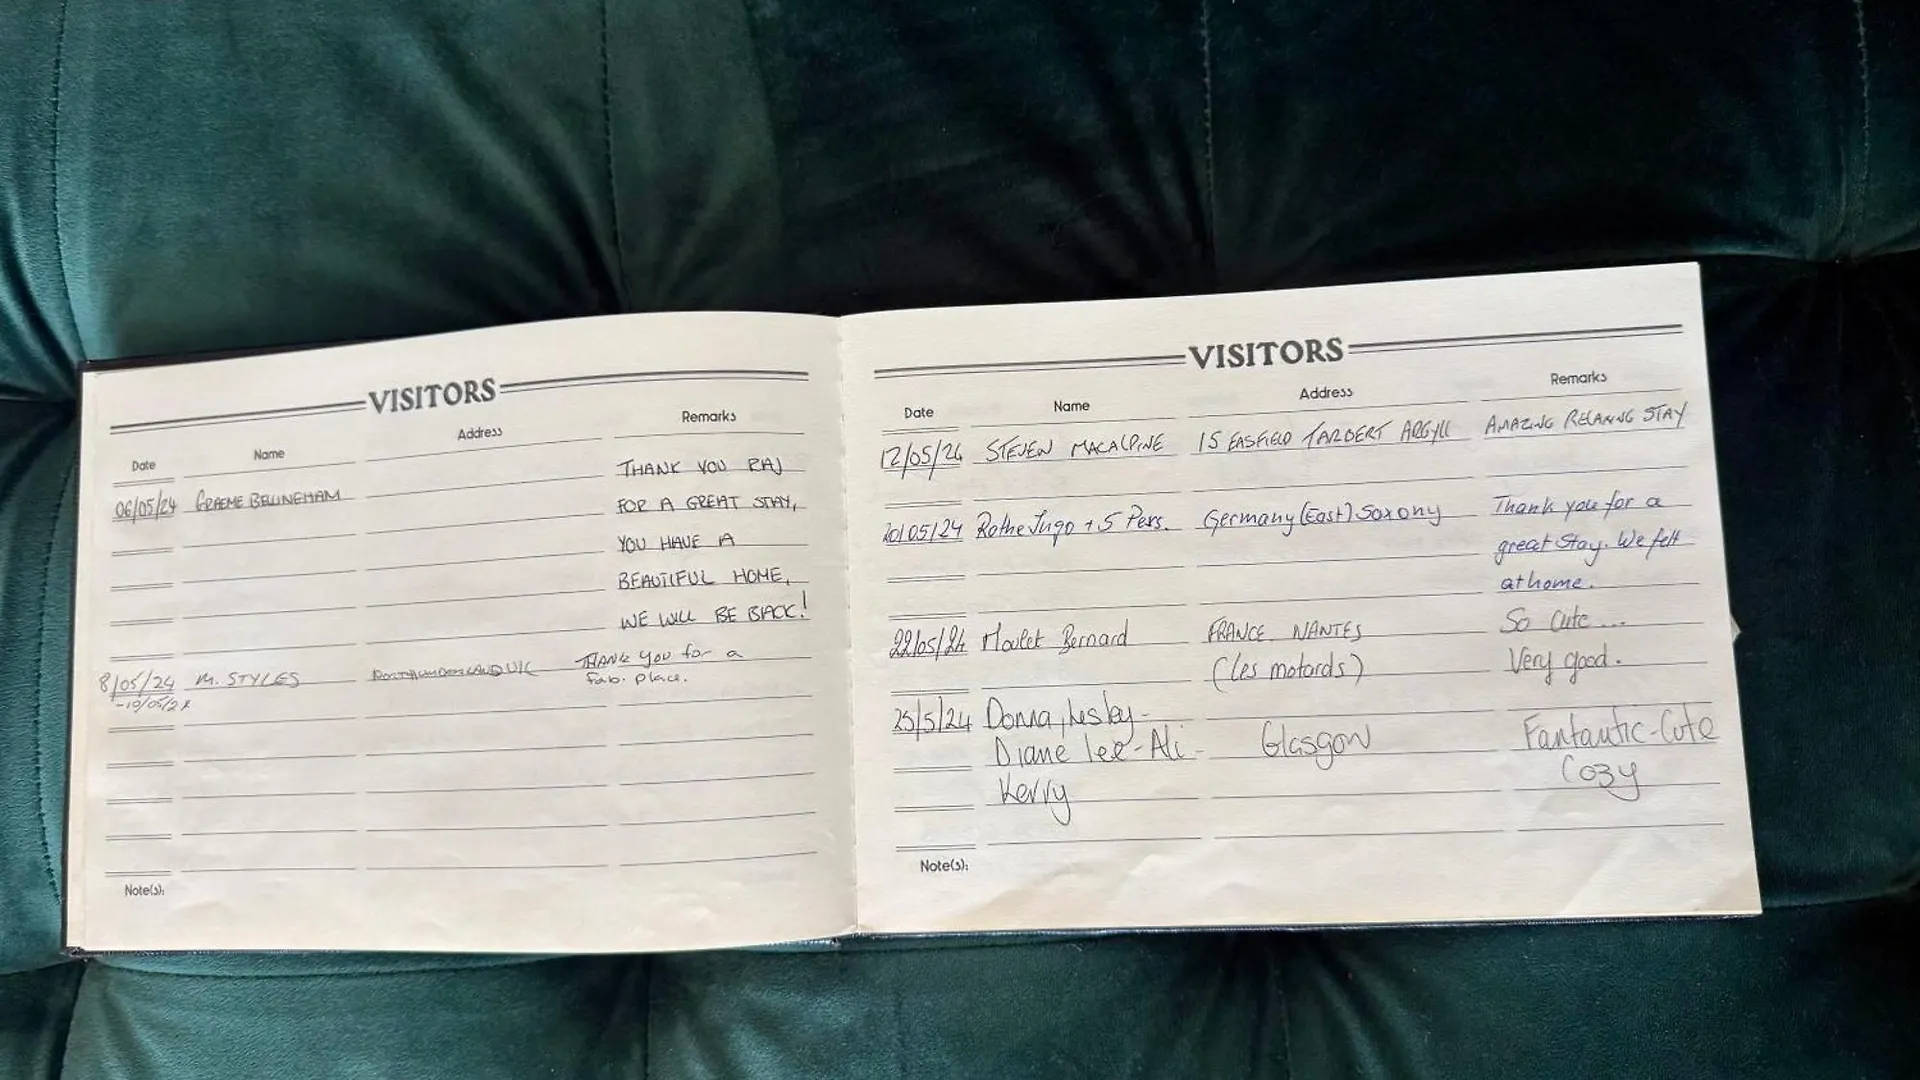 VISITORS
Date Name Address Remarks
06/05/24 GRAEME BELLINGHAM THANK YOU RAJ
FOR A GREAT STAY,
YOU HAVE A
BEAUTIFUL HOME,
WE WILL BE BACK!
8/05/24 M. STYLES NORTHUMBERLAND UK THANK YOU for a
-10/05/24 fab. place.
Note(s):
VISITORS
Date Name Address Remarks
12/05/24 STEVEN MACALPINE 15 EASFIELD TARBERT ARGYLL AMAZING RELAXING STAY
20/05/24 Rothe Ingo + 5 Pers. Germany (East) Saxony Thank you for a
great Stay. We felt
at home.
22/05/24 Moulet Bernard FRANCE NANTES So Cute ...
(les motards) Very good.
25/5/24 Donna, Lesley-
Diane Lee-Ali- Glasgow Fantautic-Cute
Kerry Cozy
Note(s):